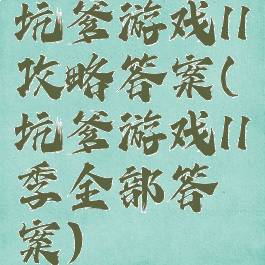 坑爹游戏11
攻略答案(
坑爹游戏11
季全部答
案)